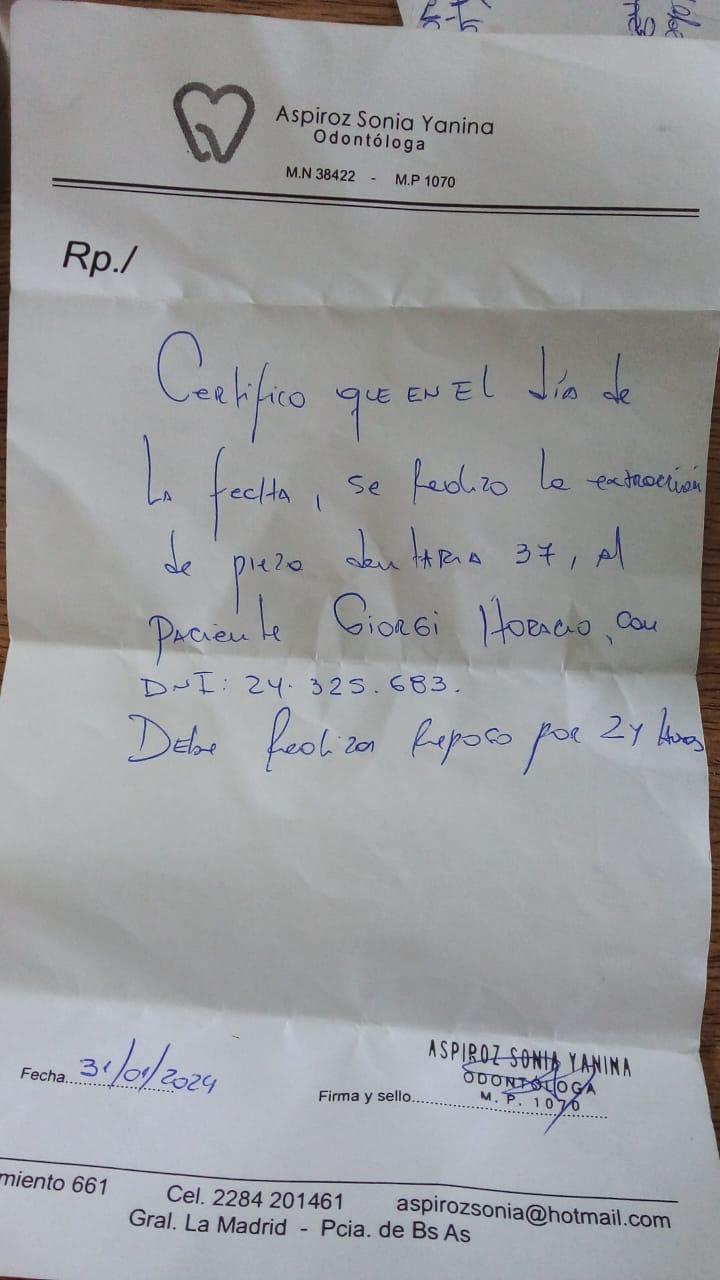 Aspiroz Sonia Yanina
Odontóloga
M.N 38422 - M.P 1070
Rp./
Certifico que en el día de
la fecha, se realizo la extracción
de pieza dentaria 37, al
paciente Giorgi Horacio, con
DNI: 24.325.683.
Debe realizar reposo por 24 horas
Fecha 31/01/2024
ASPIROZ SONIA YANINA
ODONTOLOGA
M. P. 1070
Firma y sello
miento 661 Cel. 2284 201461 aspirozsonia@hotmail.com
Gral. La Madrid - Pcia. de Bs As